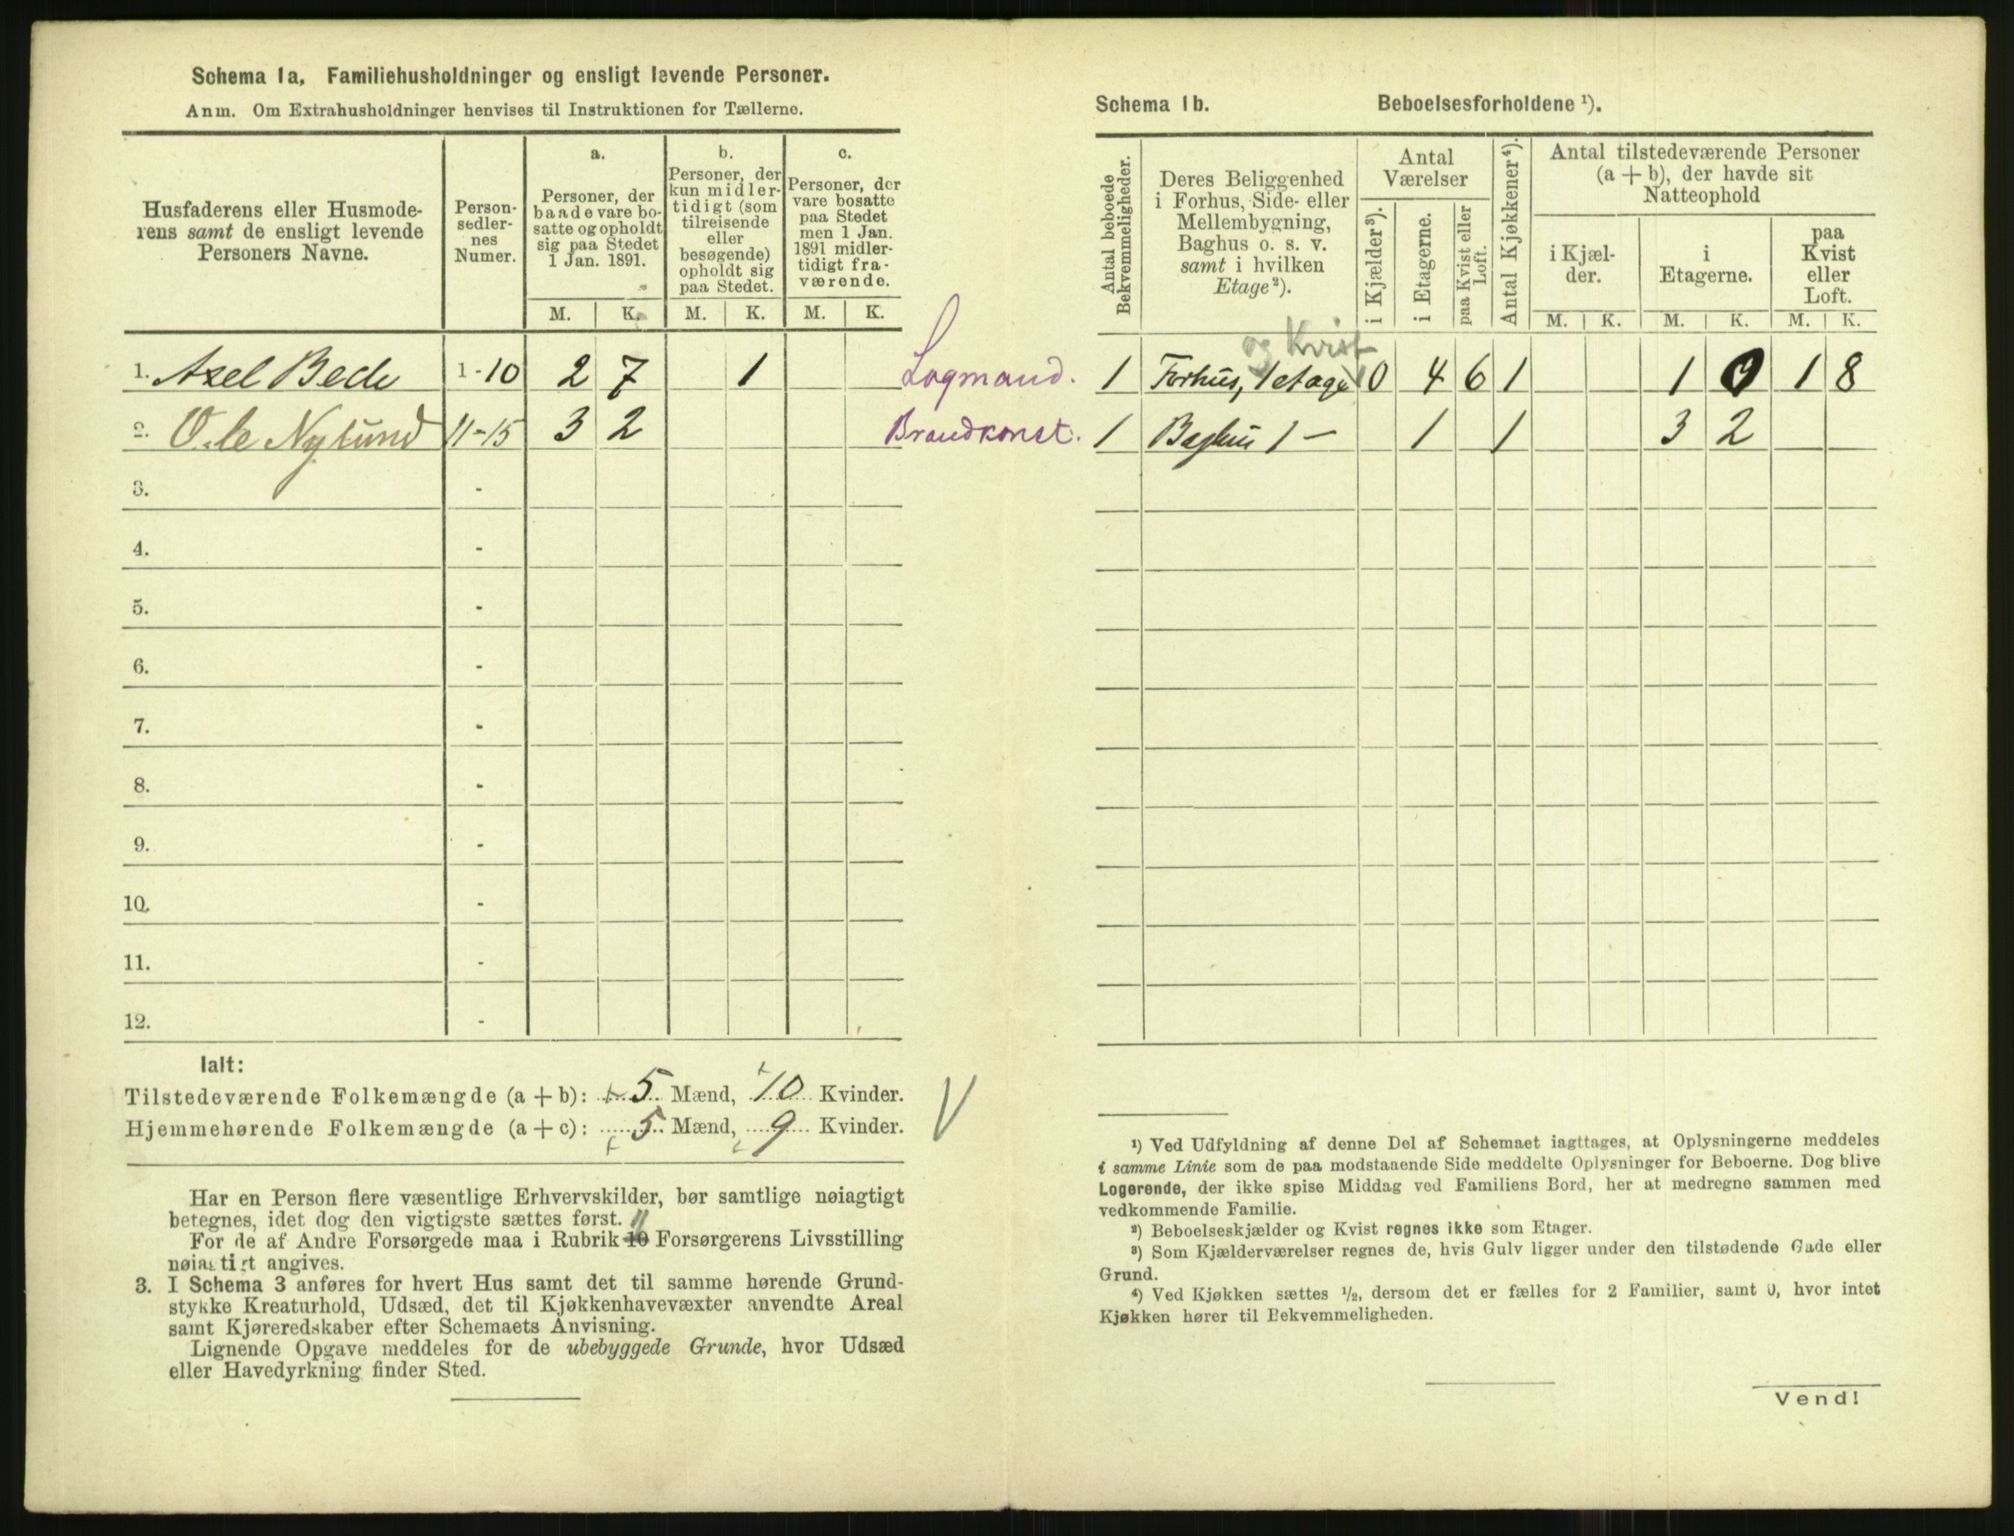 Schema 1a. Familiehusholdninger og ensligt levende Personer.
Anm. Om Extrahusholdninger henvises til Instruktionen for Tællerne.
Husfaderens eller Husmode-
rens samt de ensligt levende
Personers Navne.
Person-
sedler-
nes
Numer.
a.
Personer, der
baade vare bo-
satte og opholdt
sig paa Stedet
1 Jan. 1891.
M. K.
b.
Personer, der
kun midler-
tidigt (som
tilreisende
eller
besøgende)
opholdt sig
paa Stedet.
M. K.
c.
Personer, der
vare bosatte
paa Stedet
men 1 Jan.
1891 midler-
tidigt fra-
værende.
M. K.
1. Axel Bede 1-10 2 7 1 Lagmand.
2. Ole Nylund 11-15 3 2 Brandkonst.
3. -
4. -
5. -
6. -
7. -
8. -
9. -
10. -
11. -
12. -
Ialt:
Tilstedeværende Folkemængde (a + b): 5 Mænd, 10 Kvinder.
Hjemmehørende Folkemængde (a + c): 5 Mænd, 9 Kvinder.
Har en Person flere væsentlige Erhvervskilder, bør samtlige nøiagtigt
betegnes, idet dog den vigtigste sættes først. 11
For de af Andre Forsørgede maa i Rubrik 10 Forsørgerens Livsstilling
nøiagtigt angives.
3. I Schema 3 anføres for hvert Hus samt det til samme hørende Grund-
stykke Kreaturhold, Udsæd, det til Kjøkkenhavevæxter anvendte Areal
samt Kjøreredskaber efter Schemaets Anvisning.
Lignende Opgave meddeles for de ubebyggede Grunde, hvor Udsæd
eller Havedyrkning finder Sted.
Schema 1b. Beboelsesforholdene ¹).
Antal beboede
Bekvemmeligheder.
Deres Beliggenhed
i Forhus, Side- eller
Mellembygning,
Baghus o. s. v.
samt i hvilken
Etage²).
Antal
Værelser
i Kjælder³).
i Etagerne.
paa Kvist eller
Loft.
Antal Kjøkkener⁴).
Antal tilstedeværende Personer
(a + b), der havde sit
Natteophold
i Kjæl-
der.
i
Etagerne.
paa
Kvist
eller
Loft.
M. K. M. K. M. K.
og Kvist
1 Forhus, 1 etage 0 4 6 1 1 0 1 8
1 Baghus 1 – 1 1 3 2
¹) Ved Udfyldning af denne Del af Schemaet iagttages, at Oplysningerne meddeles
i samme Linie som de paa modstaaende Side meddelte Oplysninger for Beboerne. Dog blive
Logerende, der ikke spise Middag ved Familiens Bord, her at medregne sammen med
vedkommende Familie.
²) Beboelseskjælder og Kvist regnes ikke som Etager.
³) Som Kjælderværelser regnes de, hvis Gulv ligger under den tilstødende Gade eller
Grund.
⁴) Ved Kjøkken sættes ½, dersom det er fælles for 2 Familier, samt 0, hvor intet
Kjøkken hører til Bekvemmeligheden.
Vend!